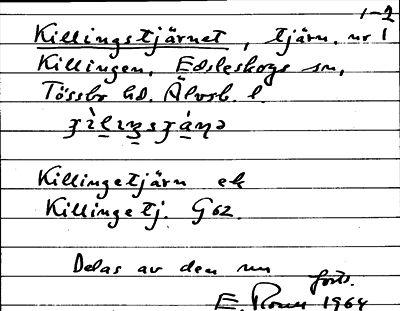 1-2
Killingstjärnet, tjärn. nr 1
Killingen. Edsleskogs sn,
Tössbo hd. Älvsb. l.
Killingetjärn ek
Killingetj. G62.
Delas av den nu
forts.
E. 1964